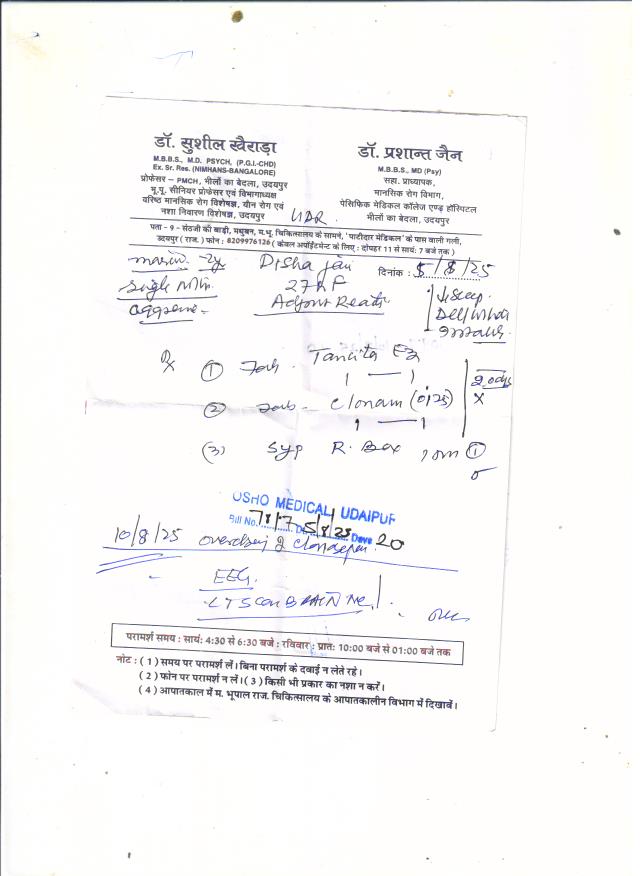 डॉ. सुशील खैराड़ा
M.B.B.S., M.D. PSYCH, (P.G.I.-CHD)
Ex. Sr. Res. (NIMHANS-BANGALORE)
प्रोफेसर - PMCH, भीलों का बेदला, उदयपुर
भू.पू. सीनियर प्रोफेसर एवं विभागाध्यक्ष
वरिष्ठ मानसिक रोग विशेषज्ञ, यौन रोग एवं
नशा निवारण विशेषज्ञ, उदयपुर
डॉ. प्रशान्त जैन
M.B.B.S., MD (Psy)
सहा. प्राध्यापक,
मानसिक रोग विभाग,
पेसिफिक मेडिकल कॉलेज एण्ड हॉस्पिटल
भीलों का बेदला, उदयपुर
UDR.
पता - 9 - सेठजी की बाड़ी, मधुबन, म.भू. चिकित्सालय के सामने, 'पाटीदार मेडिकल' के पास वाली गली,
उदयपुर ( राज. ) फोन : 8209976126 ( केवल अपॉईंटमेंट के लिए : दोपहर 11 से सायं: 7 बजे तक )
2y Disha Jain दिनांक : 5/8/25
Single 27 F ↓ Sleep
Rx (1) Tab.
(2) Tab - Clonam (0.25) X
1 — 1
(3) Syp R. Bex
USHO MEDICAL, UDAIPUR
Bill No. 7817 Dt. 5/8/25 Dave 20
10/8/25
EEG.
CT Scan BRAIN
परामर्श समय : सायं: 4:30 से 6:30 बजे : रविवार : प्रात: 10:00 बजे से 01:00 बजे तक
नोट : ( 1 ) समय पर परामर्श लें। बिना परामर्श के दवाई न लेते रहे।
( 2 ) फोन पर परामर्श न लें। ( 3 ) किसी भी प्रकार का नशा न करें।
( 4 ) आपातकाल में म. भूपाल राज. चिकित्सालय के आपातकालीन विभाग में दिखावें।